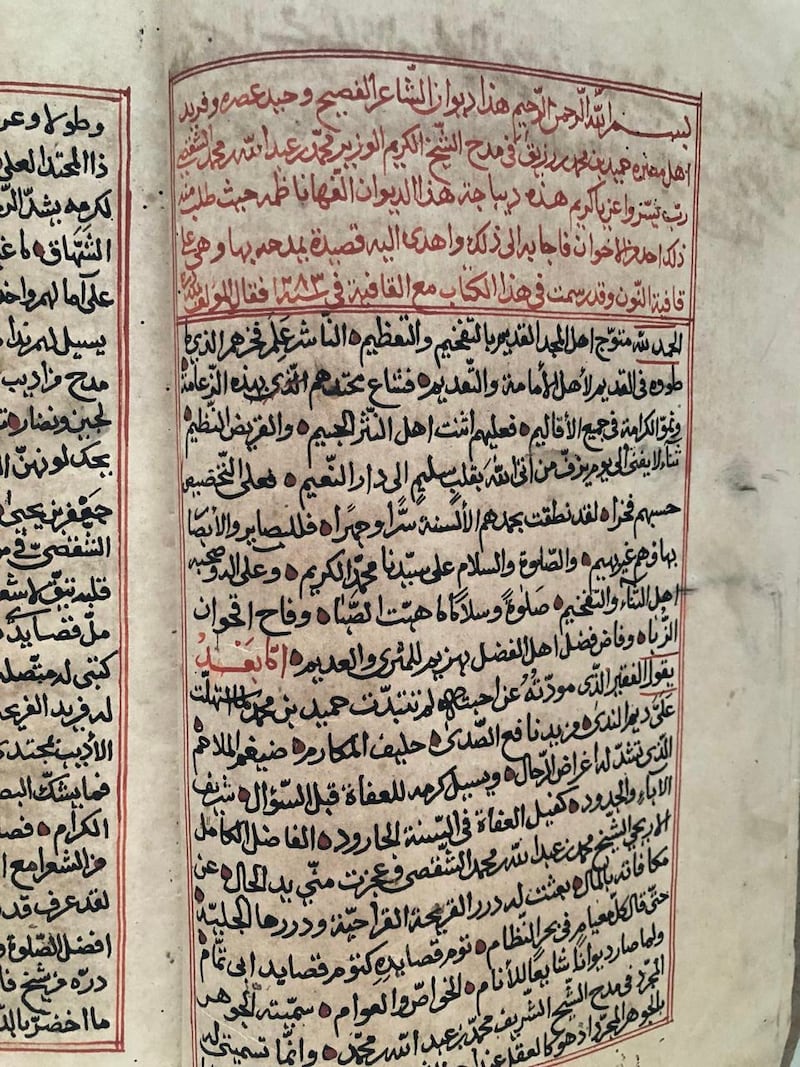 بسم الله الرحمن الرحيم هذا ديوان الشاعر الفصيح وحيد عصره وفريد
اهل مصره حميد بن محمد رزيق في مدح الشيخ الكريم الوزير محمد بن عبدالله بن محمد الشقصي
رب يسر واعن يا كريم هذه ديباجة هذا الديوان الفها ناظمه حيث طلب منه
ذلك احد الاخوان فاجابه الى ذلك واهدى اليه قصيدة يمدحه بها وهي على
قافية النون وقد رسمت في هذا الكتاب مع القافية في سنة ١٢٨٣ فقال المؤلف
الحمد لله متوّج اهل المجد القديم بالتفخيم والتعظيم الناشر علم فخرهم الذي
طوده في القديم لأهل الأمامة والتقديم فشاع محتدهم الذي بهذه الزعامة
ونمو الكرامة في جميع الأقاليم فعليهم اثنت اهل النثر الجسيم والقريض النظيم
ثناء لا يفنى الى يوم يزف من اتى الله بقلب سليم الى دار النعيم فعلى التخصيص
حسبهم فخرا لقد نطقت بحمدهم الألسنة سرًا وجهرًا فللبصاير والأبصار
بهاوهم غير بهيم والصلوة والسلام على سيدنا محمد الكريم وعلى اله وصحبه
اهل الثناء والتفخيم صلوةً وسلامًا ما هبت الصبا وفاح اقحوان
الربا وفاض فضل اهل الفضل بهزيم للمثري والعديم امّا بعد
يقول الفقير الذي مودته عن احبته لم تتبدّت حميد بن محمد لما انهلت
عليّ ديم الندى مزيدنا فع الصدى حليف المكارم ضيغم الملاحم
الذي تشد له اغراض الرجال ويسيل كرمه للعفاة قبل السؤال شريف
الاباء والجدود كفيل العفاة في السنة الجارود الفاضل الكامل
الاريحي الشيخ محمد بن عبد الله بن محمد الشقصي وعجزت منّي يد الحال عن
مكافاته بالمال بعثت له درر القريحة القراحيّة ودررها الجليّة
حتى قال كل معيام في بحر النظام توم قصايده كتوم قصايد ابي تمّام
ولما صار ديوانًا شايعًا للأنام الخواص والعوام سميته الجوهر
المجرّد في مدح الشيخ الشريف محمد بن عبد الله بن محمد وانما تسميتي له
بالجوهر المجرّد اذ هو كالعقل
وطولا وعر
ذا المحتد العلي
لكرمه يشد الر
على آمالهم واخد
يسيل لهم ندا
مدح من اديب
لجين ونضار
جعفر بن يحيى
الشقصي في مد
ملّ قصايد
له فريد القريحة
الأديب مجتدي
فما يشك البص
الكرام فصا
من الشعرا مع ا
لقد عرف قد
افضل الصلوة و
درّه من شخ فا
ما اخضر بالند